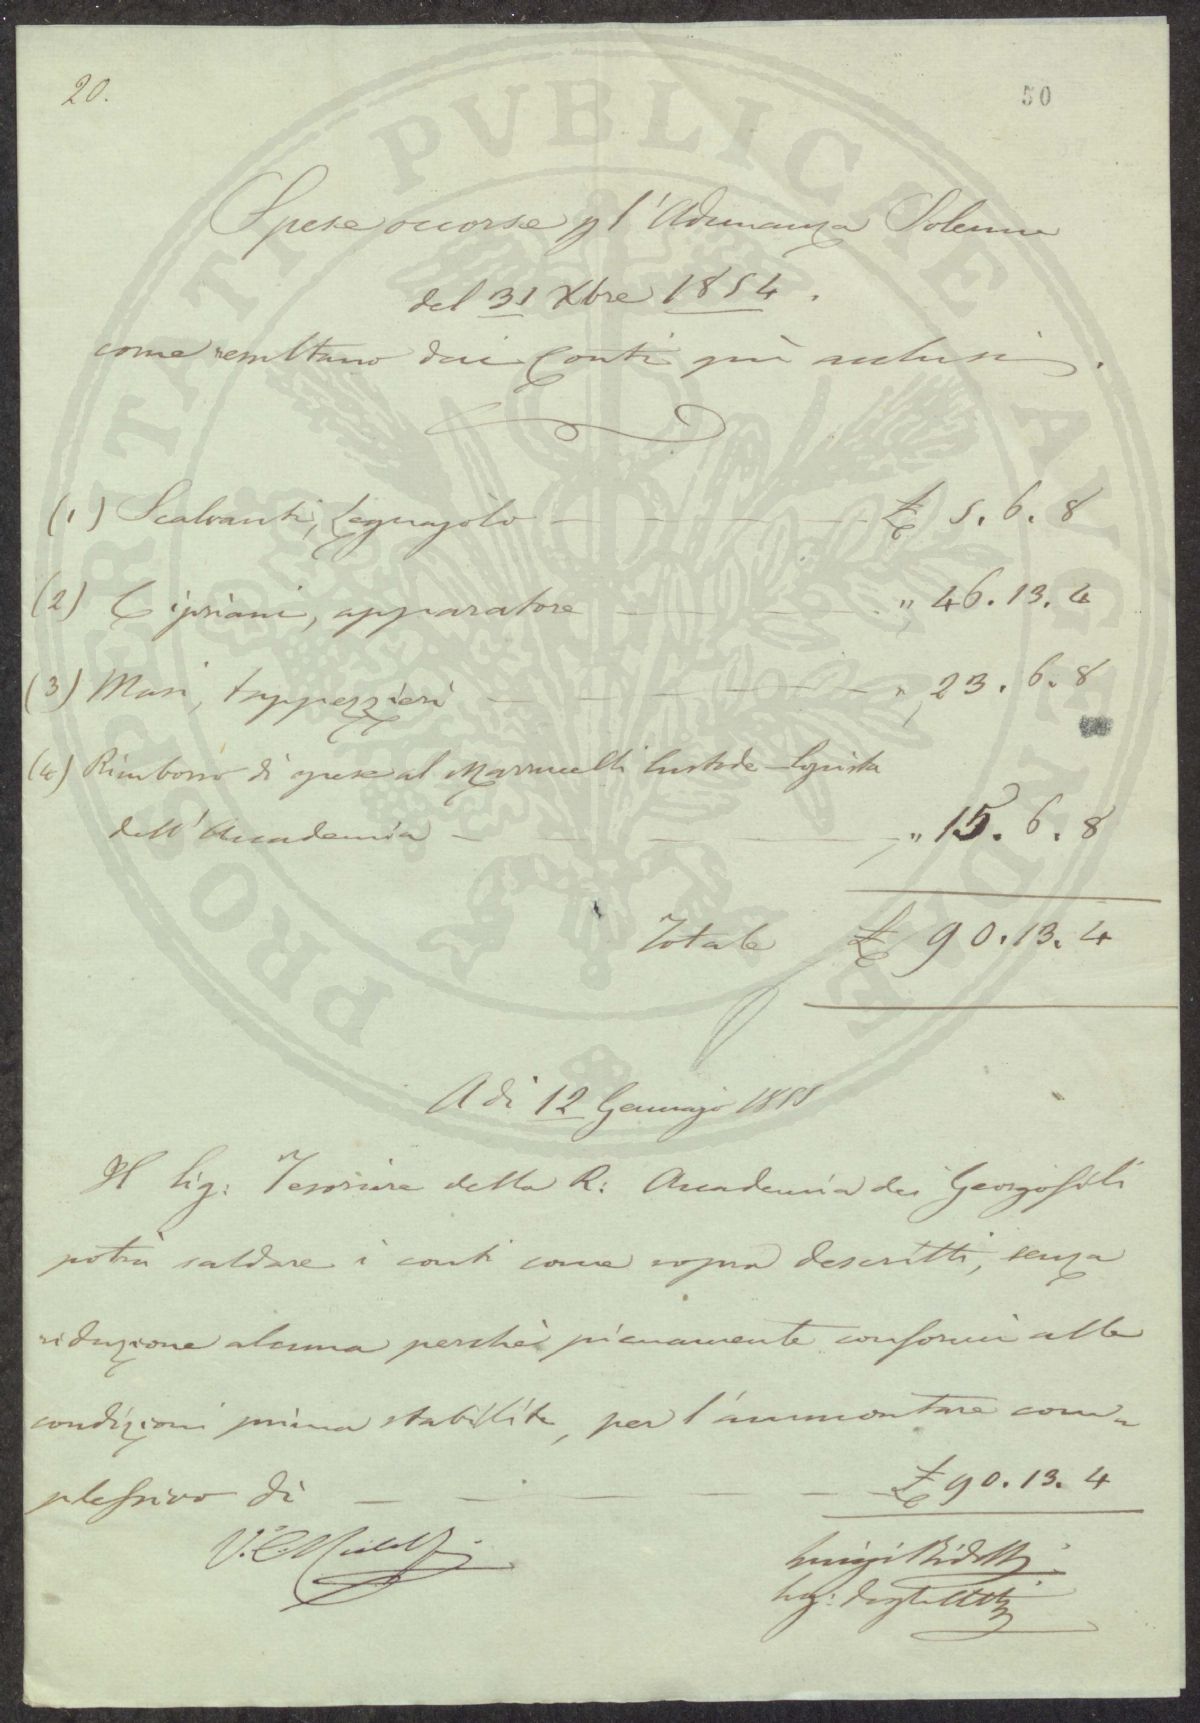 20.
50
PROSPERITATI PVBLICAE AVGENDAE
Spese occorse p l'Adunanza Solenne
del 31 Xbre 1854.
come resultano dai Conti qui inclusi.
(1) Scalvanti, Legnajolo — — — — £ 5. 6. 8
(2) Cipriani, apparatore — — — — " 46. 13. 4
(3) Masi, tappezzieri — — — — " 23. 6. 8
(4) Rimborso di spese al Marrucelli Custode-Copista
dell'Accademia — — — — " 15. 6. 8
Totale £ 90. 13. 4
A dì 12 Gennajo 1855
Il Sig: Tesoriere della R: Accademia dei Georgofili
potrà saldare i conti come sopra descritti, senza
riduzione alcuna perchè pienamente conformi alle
condizioni prima stabilite, per l'ammontare com=
plessivo di — — — — £ 90. 13. 4
Luigi Ridolfi
Seg: degli Atti